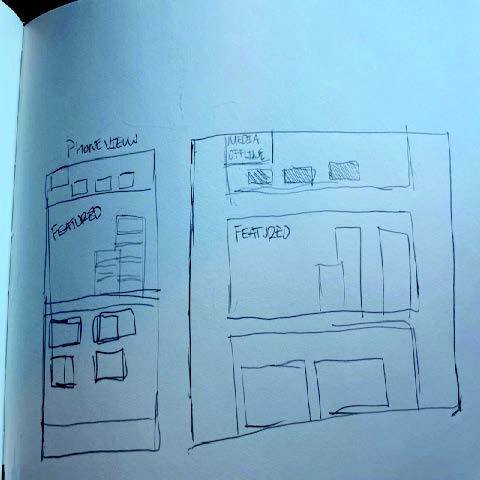 PHONE VIEW
FEATURED
MEDIA
OFFLINE
FEATURED